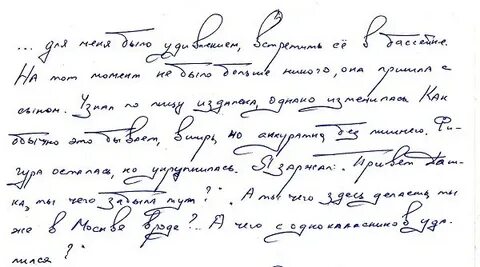 ... для меня было удивлением, встретить её в бассейне.
На тот момент не было больше никого, она пришла с
сыном. Узнал по лицу издалека, однако изменилась. Как
обычно это бывает, вширь, но аккуратна без лишнего. Фи-
гура осталась, но укрупнилась. Я заржал: "Привет Даш-
ка, ты чего забыла тут?" "А ты чего здесь делаешь, ты
же в Москве вроде?.. А чего с одноклассников уда-
лился?"